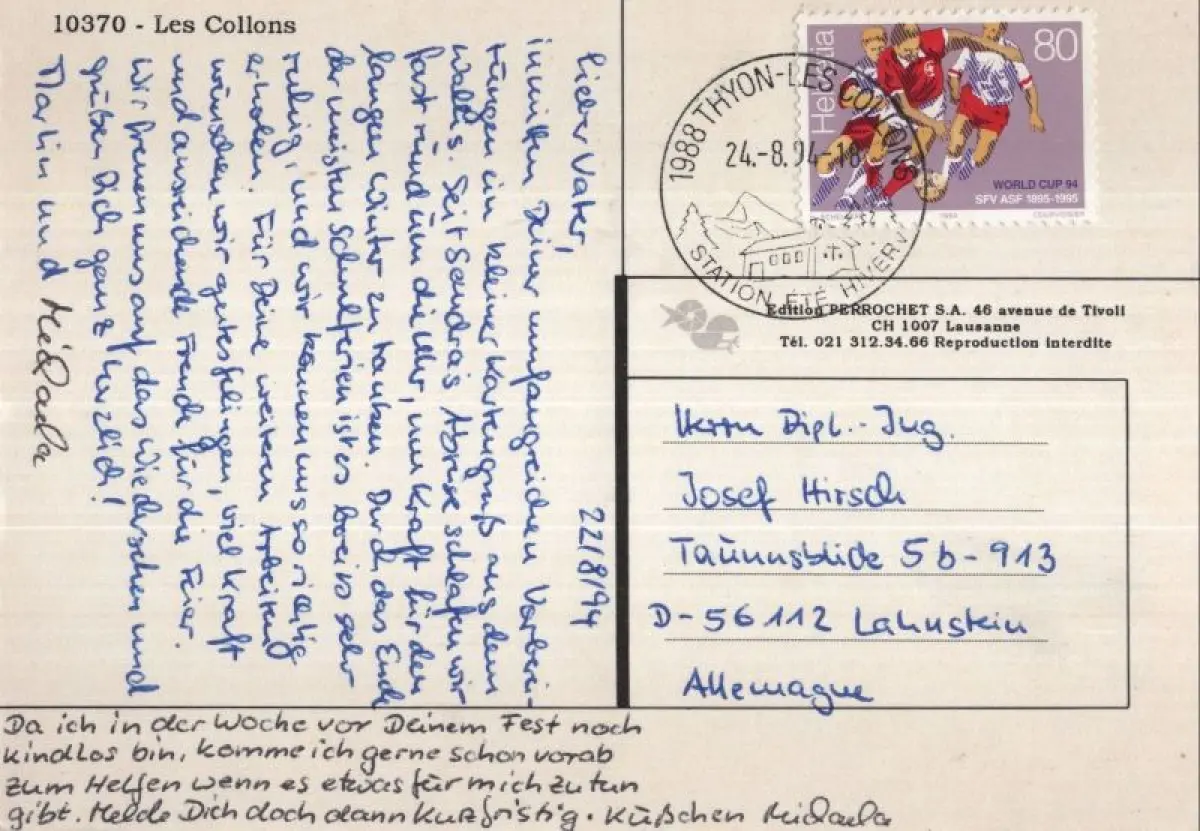 10370 - Les Collons
22/8/94
Lieber Vater,
inmitten Deiner umfangreichen Vorberei-
tungen ein kleiner Kartengruß aus dem
Wallis. Seit Sandras Abreise schlafen wir
fast rund um die Uhr, um Kraft für den
langen Winter zu tanken. Durch das Ende
der meisten Schulferien ist es bereits sehr
ruhig, und wir können uns so richtig
erholen. Für Deine weitere Arbeit
wünschen wir gutes Gelingen, viel Kraft
und ausreichende Freude für die Feier.
Wir freuen uns auf das Wiedersehen und
grüßen Dich ganz herzlich!
Martin und Michaela
Da ich in der Woche vor Deinem Fest noch
kindlos bin, komme ich gerne schon vorab
zum Helfen wenn es etwas für mich zu tun
gibt. Melde Dich doch dann kurzfristig. Küßchen Michaela
Helvetia
80
WORLD CUP 94
SFV ASF 1895-1995
1988 THYON-LES COLLONS
24.-8.94-18
STATION ÉTÉ HIVER
Edition PERROCHET S.A. 46 avenue de Tivoli
CH 1007 Lausanne
Tél. 021 312.34.66 Reproduction interdite
Herrn Dipl.-Ing.
Josef Hirsch
Taunusblick 5b-913
D-56112 Lahnstein
Allemagne